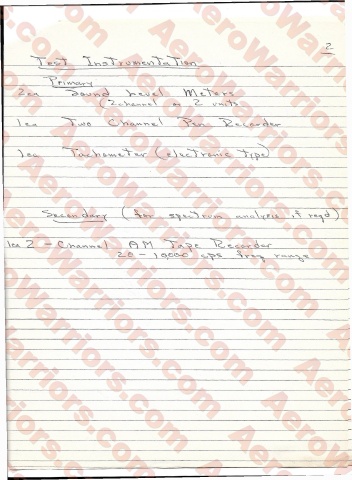 2
Test Instrumentation
Primary
2ea Sound Level Meters
(2 channel or 2 units
1ea Two Channel Pen Recorder
1ea Tachometer (electronic type)
Secondary (for spectrum analysis if reqd)
1ea 2-Channel AM Tape Recorder
20-19000 cps freq range
AeroWarriors.com